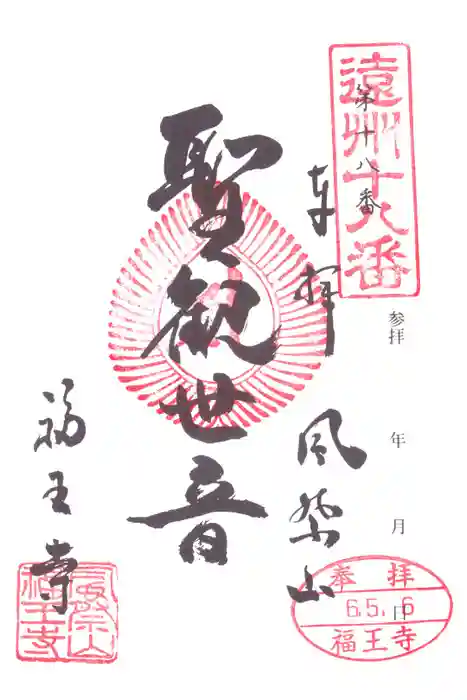 遠州十八番
第十八番
参拝 年 月 日
奉拝
風祭山
聖観世音
福王寺
奉拝
6.5.6
福王寺